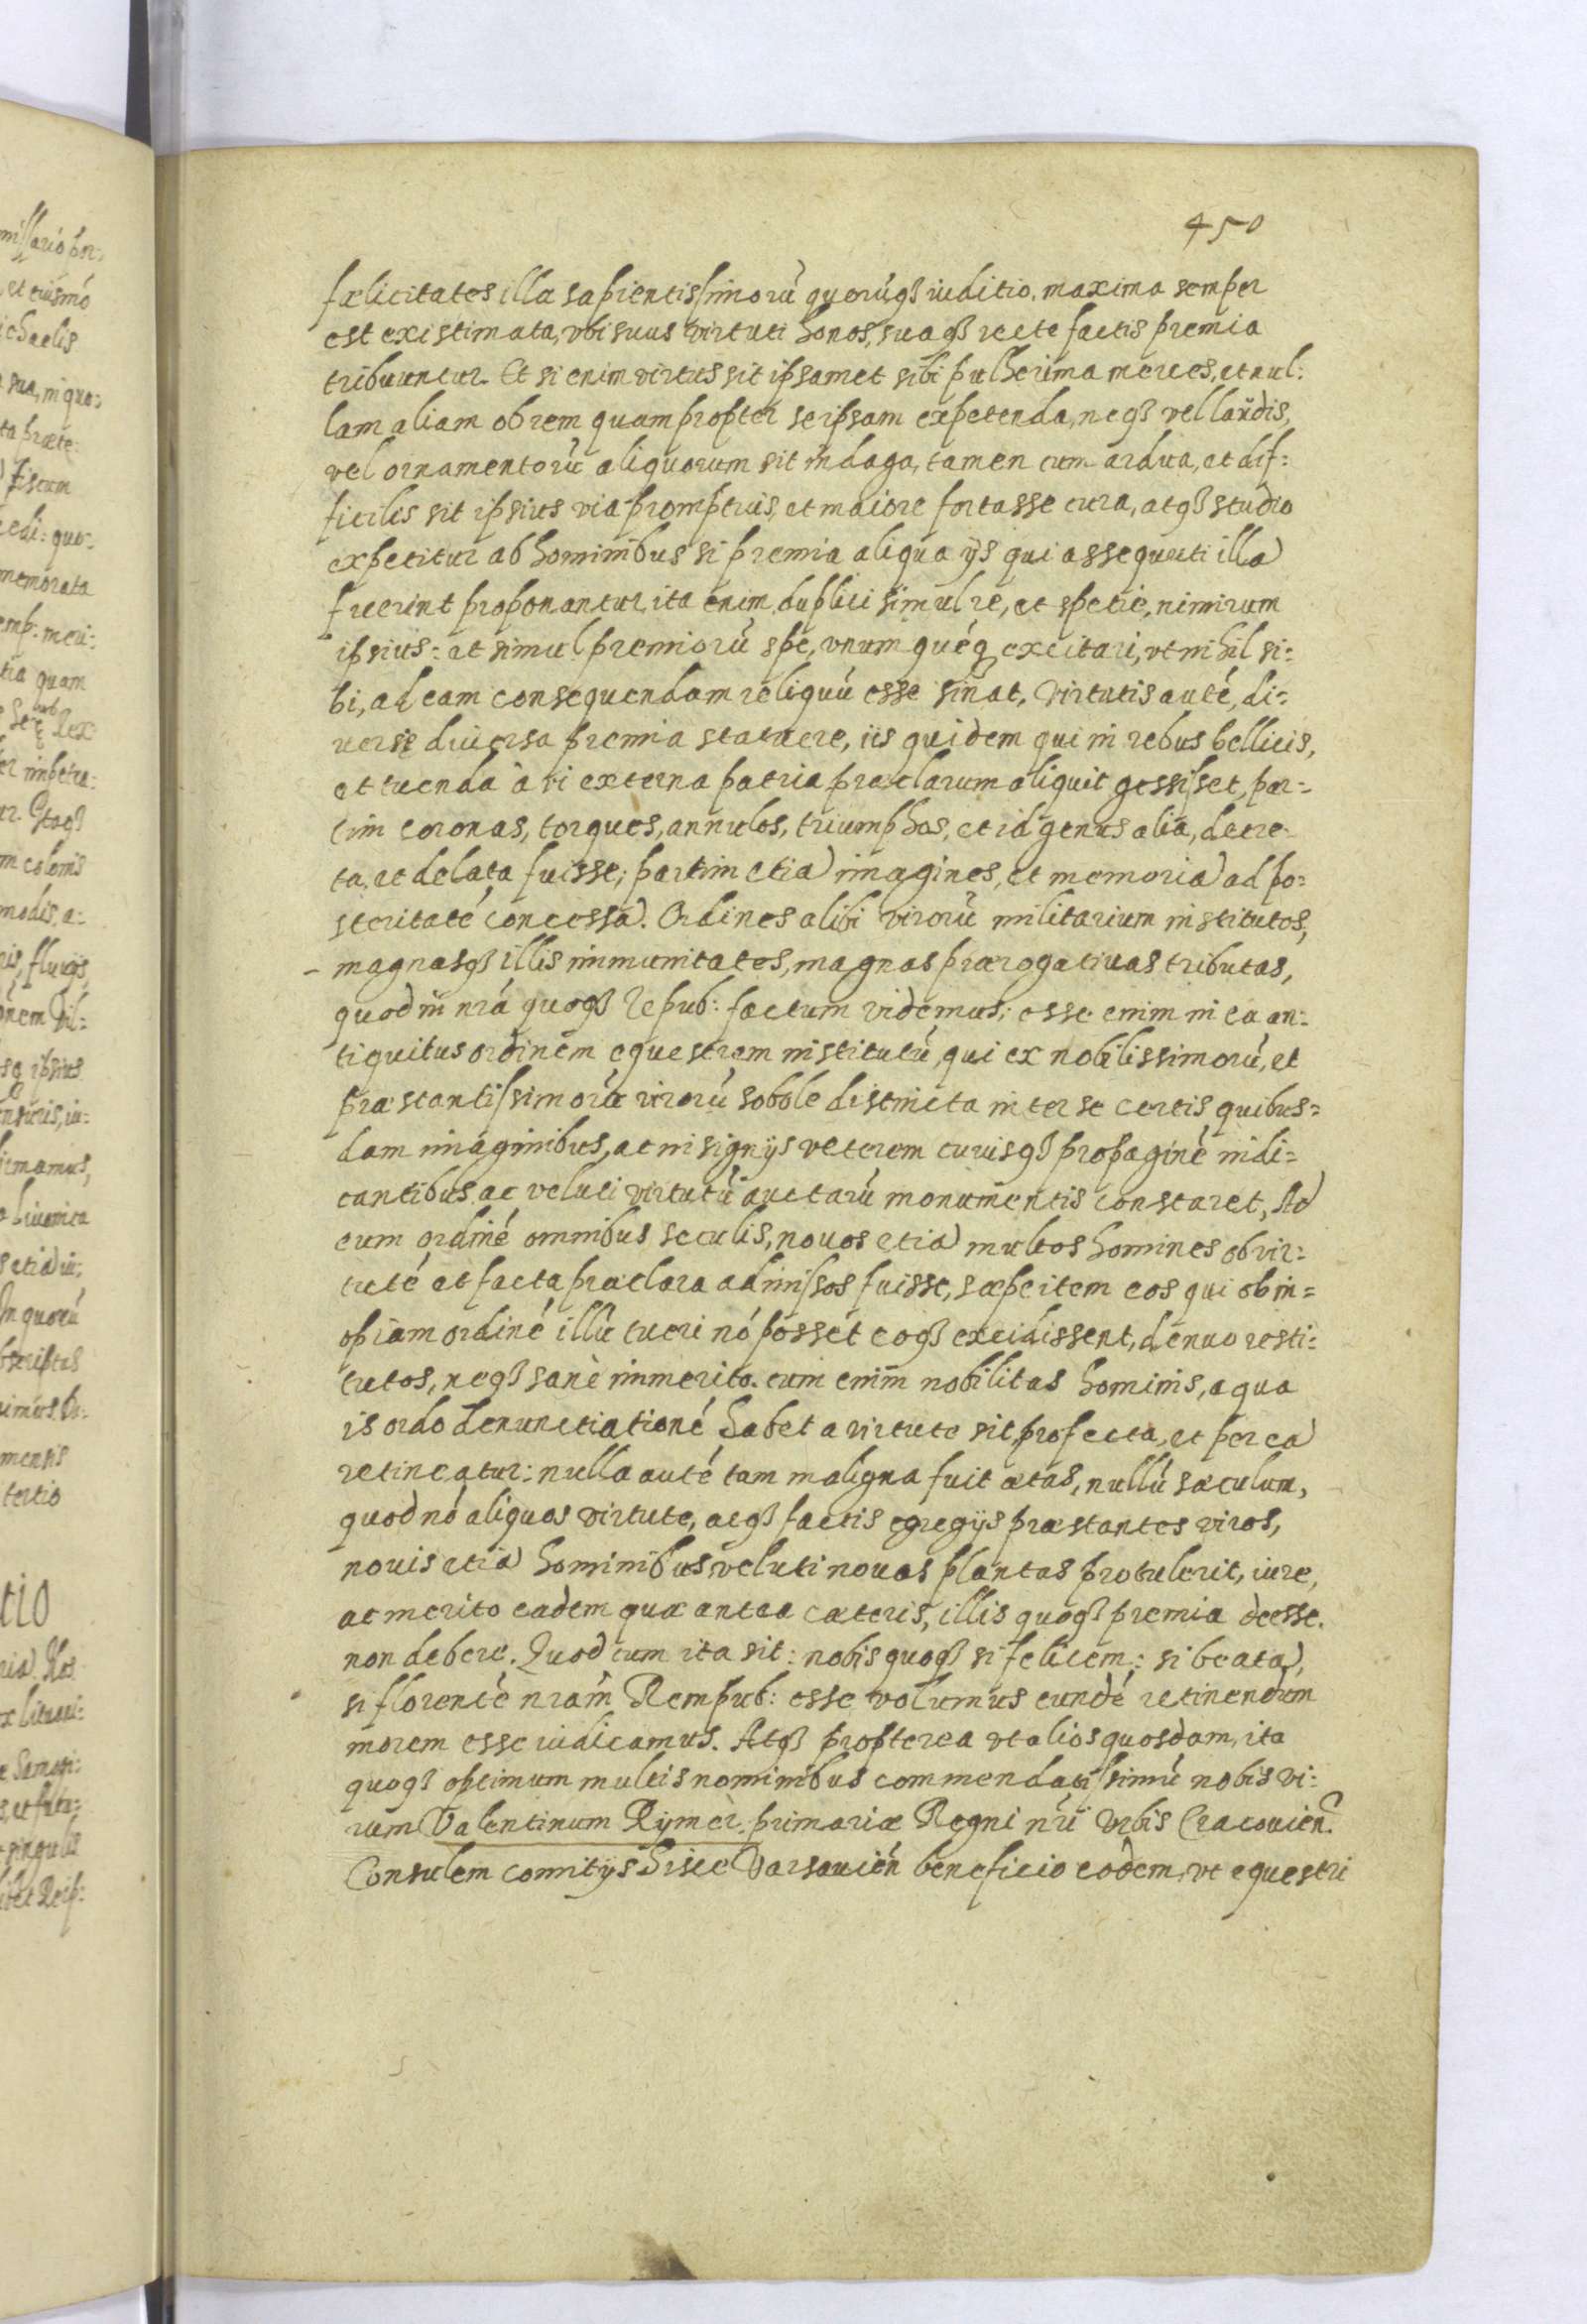 450
fælicitates illa sapientissimorũ quorũq₃ iuditio, maxima semper
est existimata, vbi suus virtuti honos, suaq₃ recte factis premia
tribuuntur. Et si enim virtus sit ipsamet sibi pulherima merces, et nul:
lam aliam ob rem quam propter se ipsam expetenda, neq₃ vel laudis,
vel ornamentorũ aliquorum sit indaga, tamen cum ardua, et dif:
ficilis sit ipsius via promptius, et maiore fortasse cura, atq₃ studio
expetitur ab hominibus si premia aliqua ijs qui assequuti illã
fuerint proponantur, ita enim, duplici simul re, et spetie, nimirum
ipsius: et simul premiorũ spe, vnum quéq₃ excitari, vt nihil si:
bi, ad eam consequendam reliquũ esse sinat. Virtutis auté, di:
uersę diuersa premia statuere, iis quidem qui in rebus bellicis,
et tuenda à vi externa patria præclarum aliquit gessisset, par:
tim coronas, torques, annulos, triumphos, et id genus alia, decre
ta, et delata fuisse; partim etiã imagines, et memoriã ad po:
steritaté concessã. Ordines alibi virorũ militarium institutos,
- magnasq₃ illis immunitates, magnas prærogatiuas tributas,
quod in nrã quoq₃ Repub: factum videmus; esse enim in ea an:
tiquitus ordinem equestrem institutũ, qui ex nobilissimorũ, et
præstantissimorũ virorũ sobole distincta inter se certis quibus=
dam imaginibus, ac insignijs veterem cuiusq₃ propaginé indi=
cantibus. ac veluti virtutũ auctarũ monumentis constaret, Ad
eum ordiné omnibus seculis, nouos etiã multos homines ob vir:
tuté et facta præclara admissos fuisse, sæpe item eos qui ob in=
opiam ordiné illũ tueri nó possét eoq₃ excidissent, denuo resti:
tutos, neq₃ sanè immerito. cum enim nobilitas hominis, a qua
is ordo denunctiationé habet a virtute sit profecta, et per eã
retineatur: nulla auté tam maligna fuit ætas, nullũ sæculum,
quod nó aliquos virtute, acq₃ factis egregijs præstantes viros,
nouis etiã hominibus veluti nouas plantas protulerit, iure,
ac merito eadem quæ antea cæteris, illis quoq₃ premia deesse.
non debere. Quod cum ita sit: nobis quoq₃ si felicem: si beatã,
si florenté nrãm Rempub: esse volumus eundé retinendum
morem esse iudicamus. Atq₃ propterea vt alios quosdam, ita
quoq₃ optimum multis nominibus commendatissimũ nobis vi:
rum Valentinum Rymer. primariæ Regni nri Vrbis Cracouien̄.
Consulem comitijs hisce Varsauien̄ beneficio eodem, vt equestri